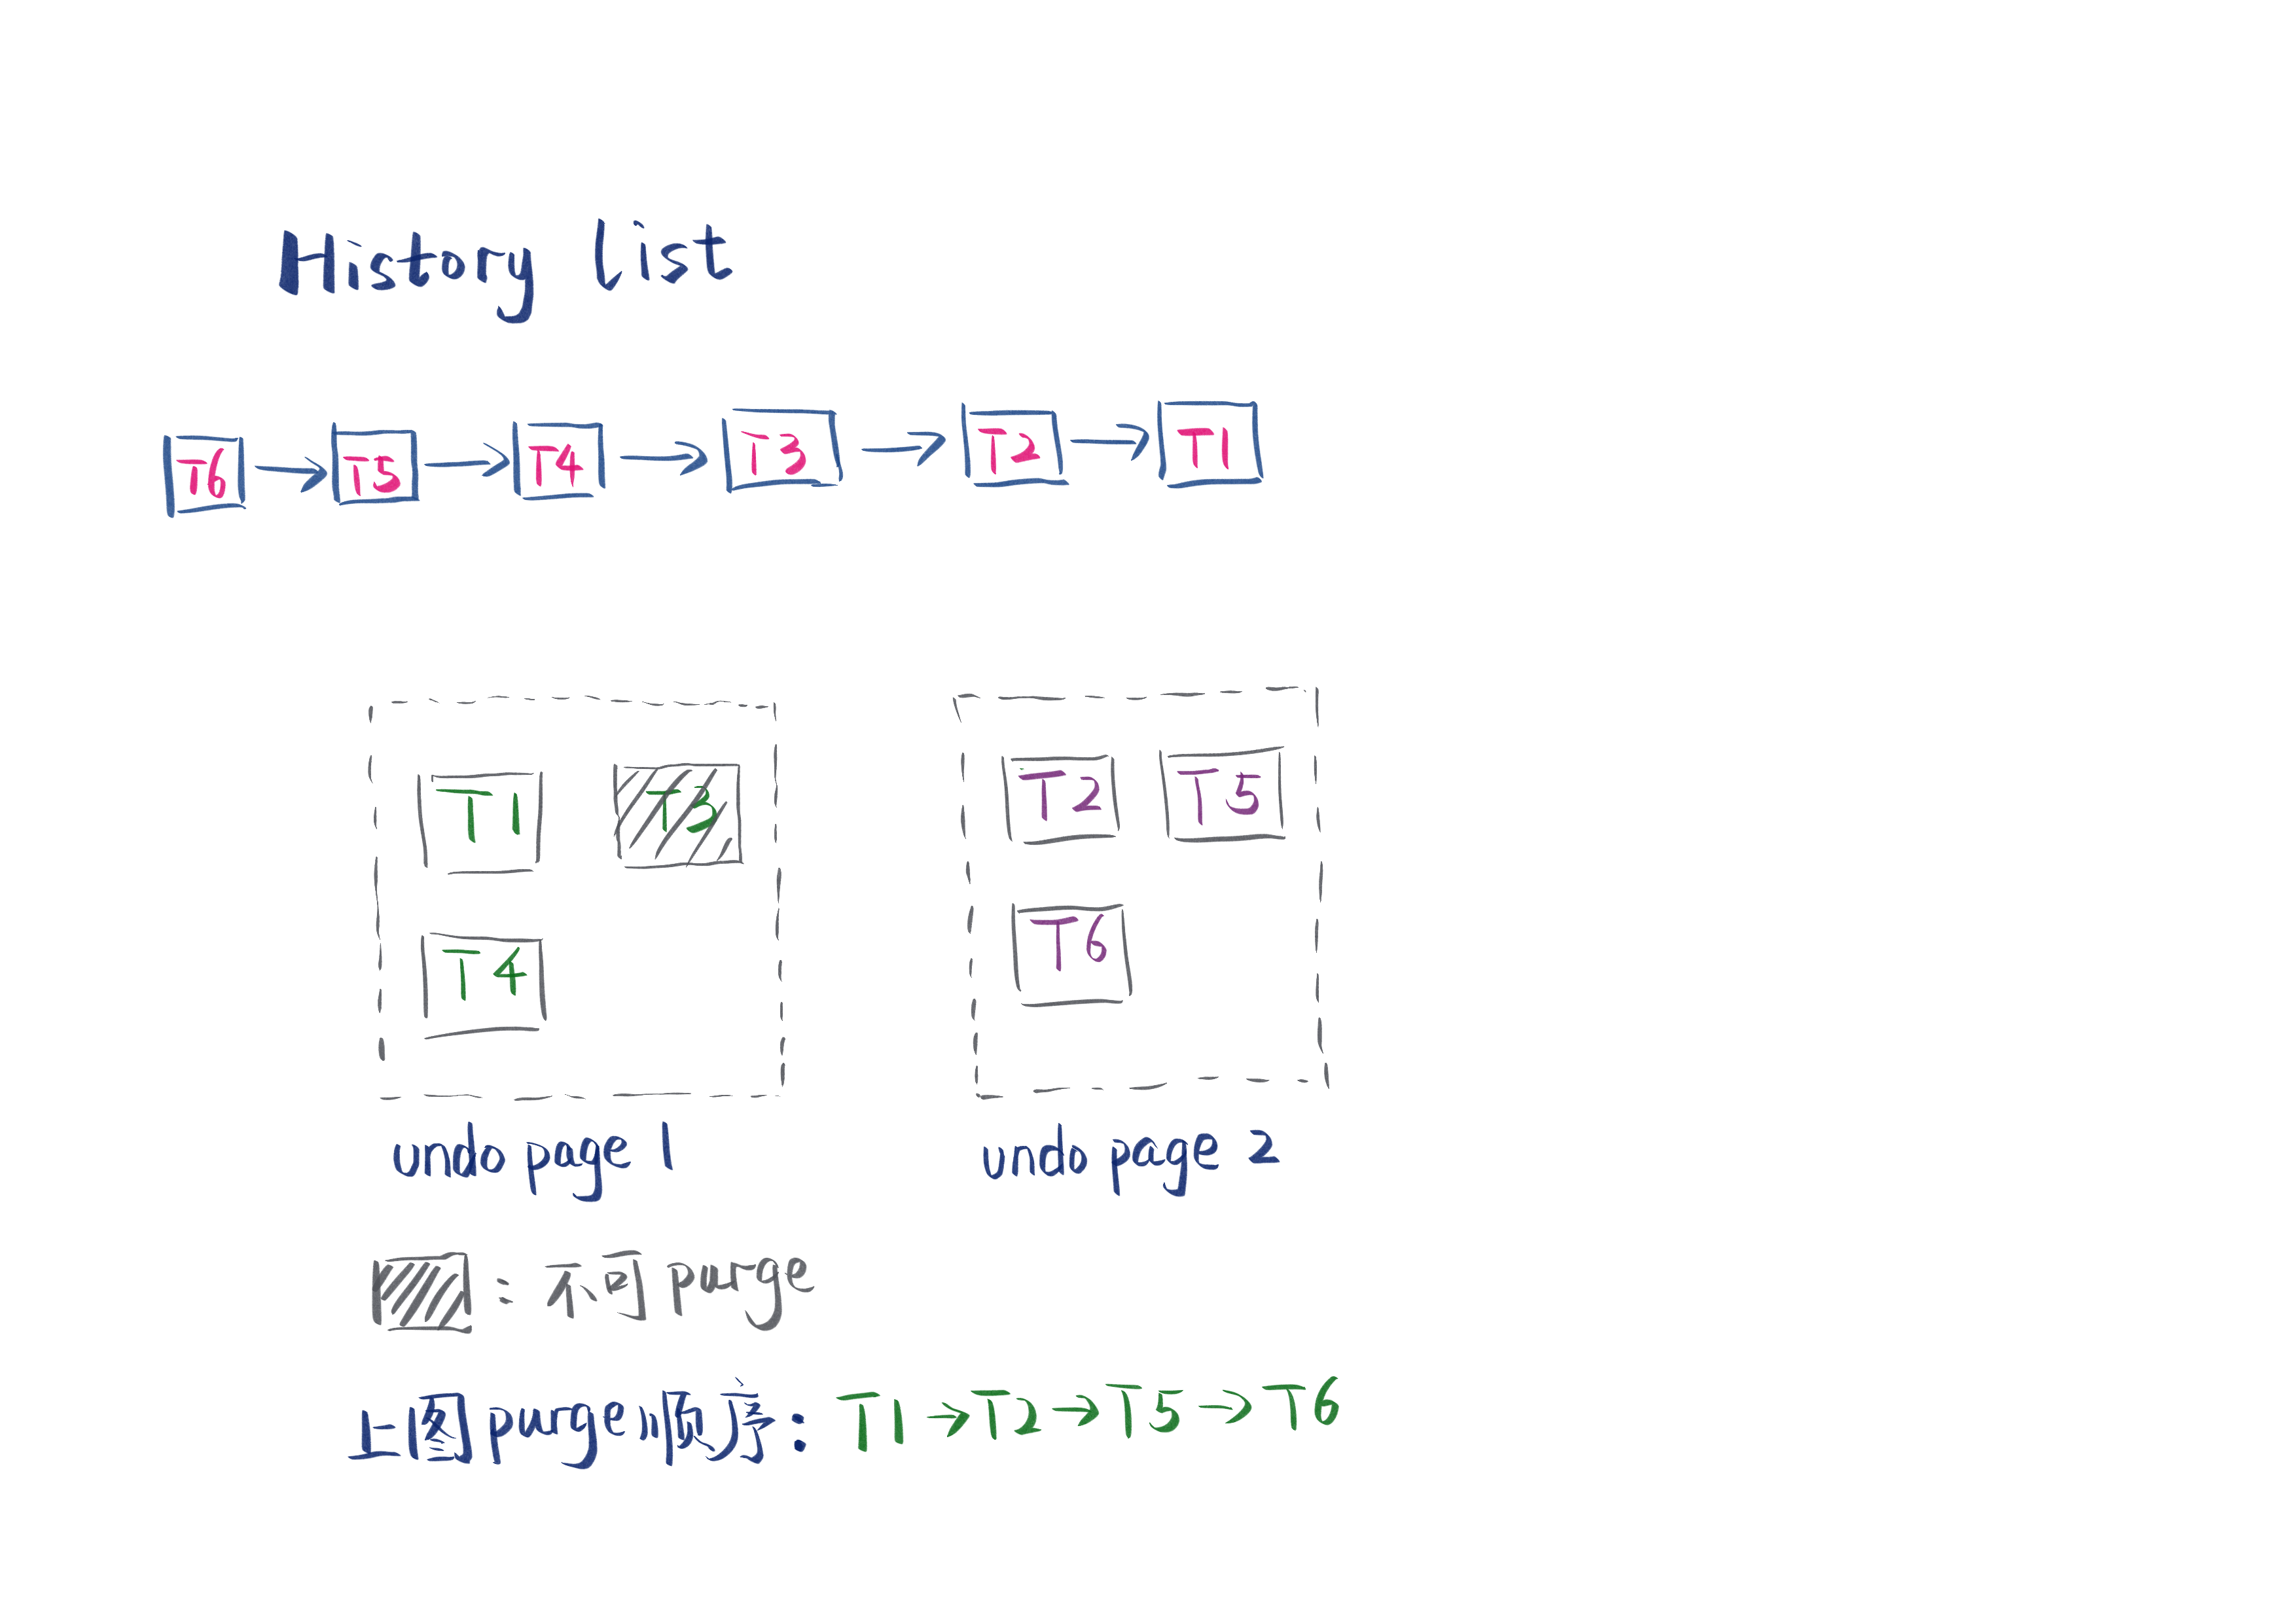 History list
T6 → T5 → T4 → T3 → T2 → T1
T1 T3
T4
T2 T5
T6
undo page 1
undo page 2
: 不可purge
上图purge顺序: T1→T2→T5→T6